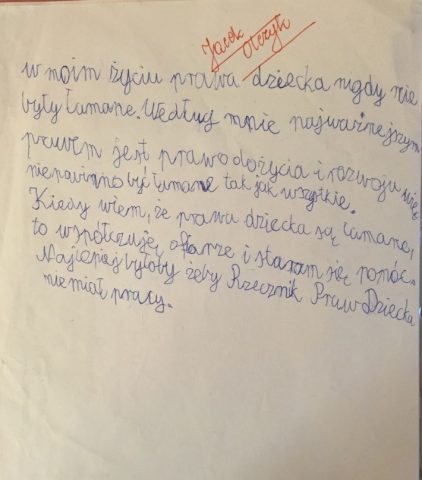 Jacek
w moim życiu prawa dziecka nigdy nie
były łamane. Według mnie najważniejszym
prawem jest prawo do życia i rozwoju więc
niepowinno być łamane tak jak wszystkie.
Kiedy wiem, że prawa dziecka są łamane,
to współczuję ofiarze i staram się pomóc.
Najlepiej byłoby żeby Rzecznik Praw Dziecka
nie miał pracy.